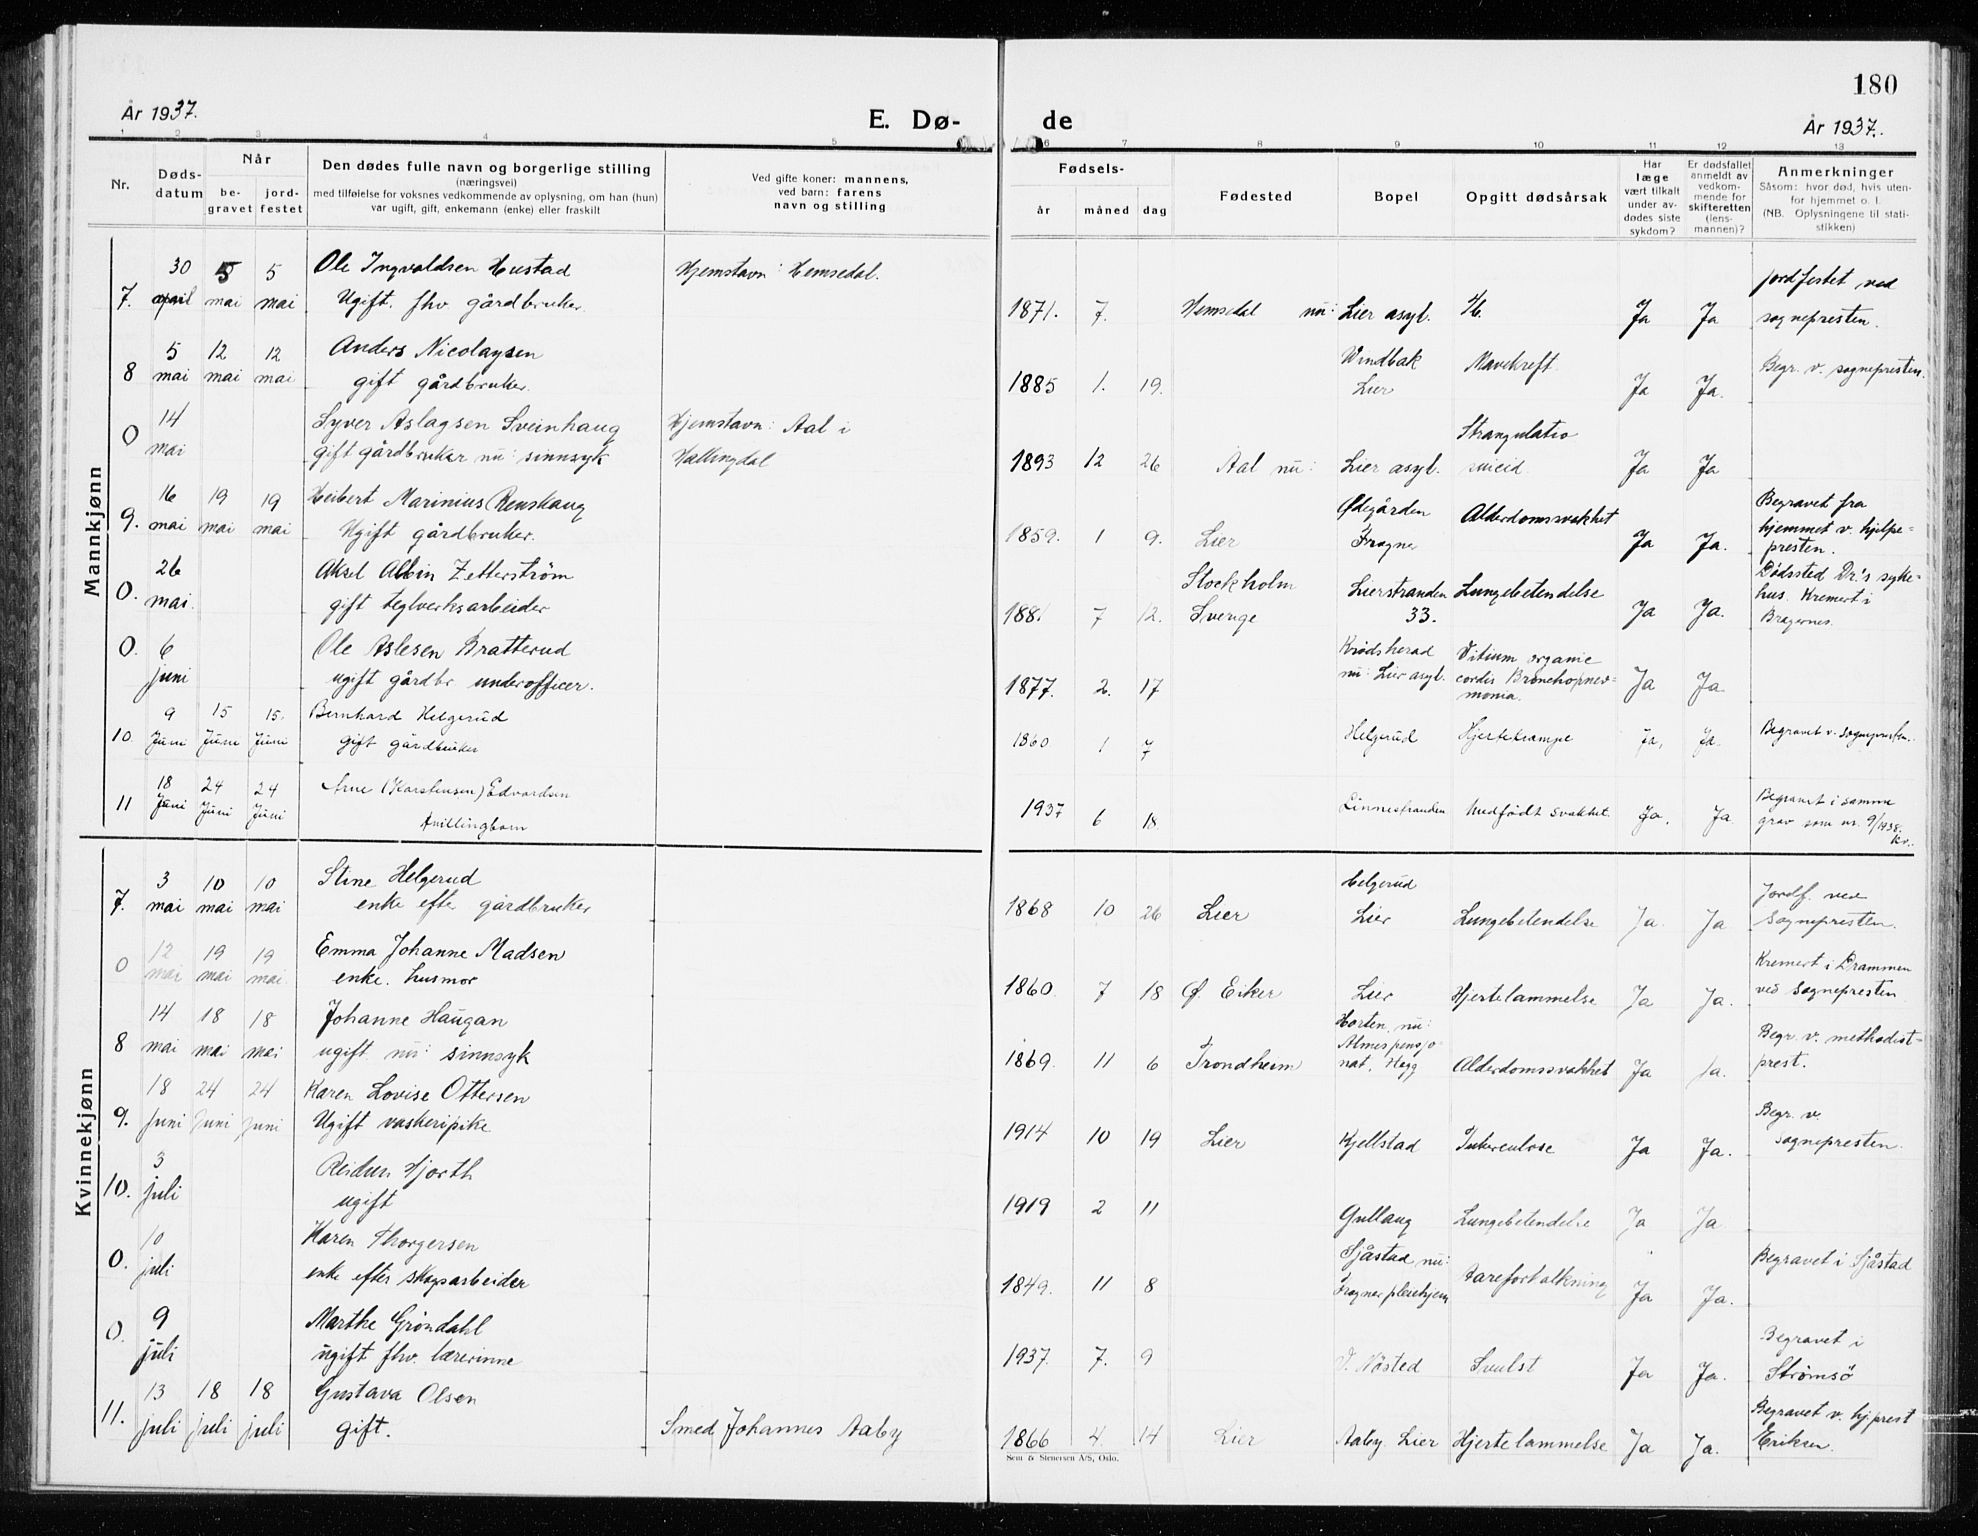 180
År 1937.
E. Dø-
de
År 1937.
1 2 3 4 5 6 7 8 9 10 11 12 13
Nr.
Døds-
datum
Når
be-
gravet
jord-
festet
Den dødes fulle navn og borgerlige stilling
(næringsvei)
med tilføielse for voksnes vedkommende av oplysning, om han (hun)
var ugift, gift, enkemann (enke) eller fraskilt
Ved gifte koner: mannens,
ved barn: farens
navn og stilling
Fødsels-
år
måned
dag
Fødested
Bopel
Opgitt dødsårsak
Har
læge
vært tilkalt
under av-
dødes siste
sykdom?
Er dødsfallet
anmeldt av
vedkom-
mende for
skifteretten
(lens-
mannen)?
Anmerkninger
Såsom: hvor død, hvis uten-
for hjemmet o. l.
(NB. Oplysningene til stati-
stikken)
Mannkjønn
30 5 5 Ole Ingvaldsen Hustad Hjemstavn: Hemsedal. jordfestet ved
7. april mai mai Ugift. fhv gårdbruker. 1871. 7. Hemsedal nu: Lier asyl. Ja Ja sognepresten.
5 12 12 Anders Nicolaysen Mavekreft. Begr. v. sognepresten.
8 mai mai mai gift gårdbruker. 1885 1. 19. Lier Ja Ja.
14 Syver Aslagsen Sveinhaug Hjemstavn: Aal i Strangulatio
0 mai gift gårdbruker nu: sinnsyk Hallingdal 1893 12 26 Aal nu: Lier asyl. suicid. Ja Ja
16 19 19 Heibert Marinius Renskaug Ødegården Alderdomssvakhet Begravet fra
9. mai mai mai Ugift gårdbruker. 1859. 1 9. Lier Frogner Ja Ja. hjemmet v. hjelpe-
presten.
26 Aksel Albin Zetterström Stockholm Lierstranden Lungebetendelse Dødssted Dr.'s syke-
0. mai. gift teglverksarbeider 1881 7 12. Sverige 33. Ja Ja. hus. Kremert i
Bragernes.
0. 6 Ole Aslesen Bratterud Krødsherad Vitium organic
juni ugift gårdbr underofficer. 1877. 2. 17 nu: Lier asyl. cordis Bronchopnev-
monia. Ja Ja
9 15 15. Bernhard Helgerud
10. Juni Juni Juni gift gårdbruker 1860 1 7 Helgerud Hjertekrampe Ja, Ja. Begravet v. sognepresten.
18 24 24 Arne (Karstensen) Edvardsen Begravet i samme
11 Juni Juni Juni tvillingbarn 1937 6 18 Linnestranden Medfødt svakhet. Ja. Ja grav som nr. 9/1938.
Kv.
Kvinnekjønn
3 10 10 Stine Helgerud Helgerud Jordf. ved
7. mai mai mai enke efter gårdbruker 1868 10 26 Lier Lier Lungebetendelse Ja. Ja Sognepresten.
12 19 19 Emma Johanne Madsen Kremert i Drammen
0 mai mai mai. enke. husmor 1860. 7 18 Ø. Eiker Lier Hjertelammelse Ja Ja. ved Sognepresten
14 18 18 Johanne Haugan Horten, nu: Begr. v. methodist-
8 mai mai mai ugift nu: sinnsyk 1869. 11 6 Trondheim Almespensjo-
nat, Hegg Alderdomssvakhet Ja Ja. prest.
18 24 24 Karen Lovise Ottersen Begr. v.
9. juni Juni juni Ugift vaskeripike 1914 10 19 Lier Kjellstad Tuberculose Ja Ja. Sognepresten.
3 Reidun Hjorth
10. juli ugift 1919 2 11 Gullaug Lungebetendelse Ja Ja
10 Karen Thorgersen Sjåstad nu: Begravet i Sjåstad
0. juli enke efter skogsarbeider 1849. 11 8 Frogner pleiehjem Aareforkalkning Ja Ja.
9 Marthe Grøndahl Begravet i
0. juli ugift fhv. lærerinne 1937. 7. 9 V. Nøsted Svulst Ja Ja. Strømsö
13 18 18 Gustava Olsen Begravet v. hj.prest
11. juli juli juli gift. Smed Johannes Aaby 1866 4. 14 Lier Aaby. Lier Hjertelammelse Ja Ja. Eriksen.
Sem & Stenersen A/S, Oslo.